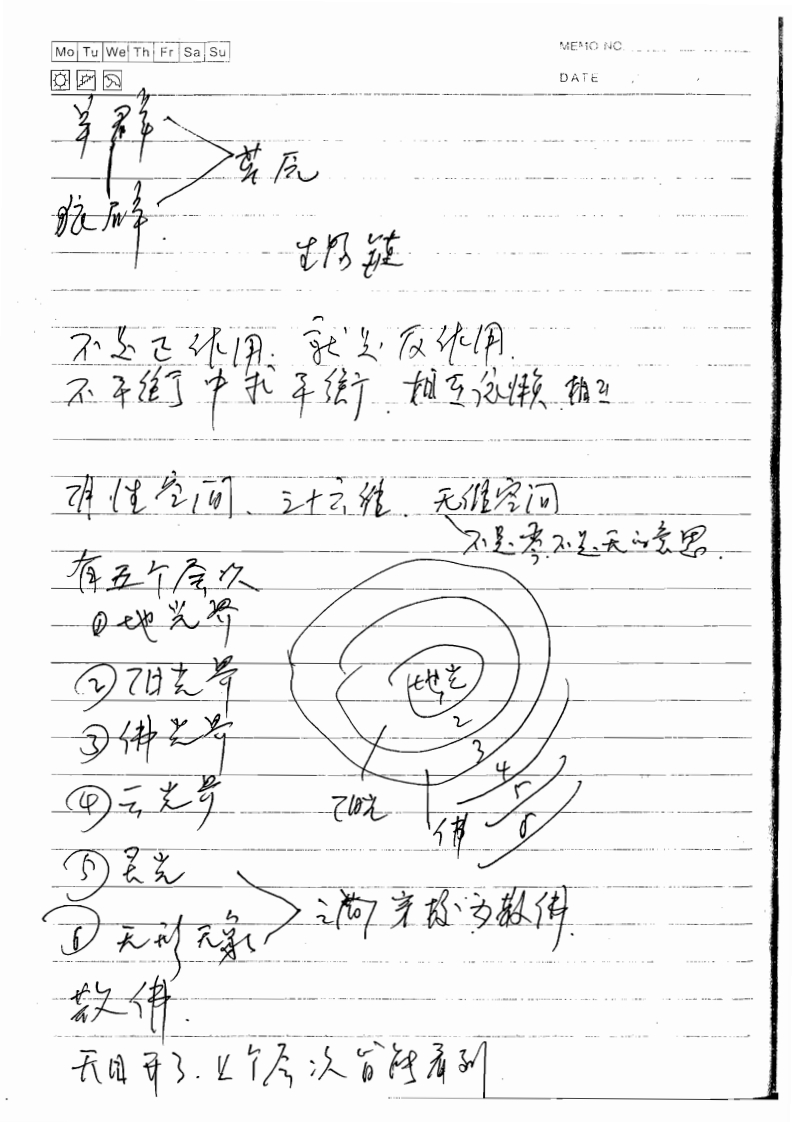 Mo Tu We Th Fr Sa Su
MEMO NO.
DATE
羊群
狼群
草原
生物链
不是正作用.就是反作用.
不平衡中求平衡.相互依赖.相互
阴性空间、三十六维.无维空间
不是零.不是无的意思.
有五个层次
①地光界
②阳光界
③佛光界
④云光界
⑤灵光
⑥无形无象
地光
2
3
4
5
6
阳光
佛
穿梭.为散佛.
散佛.
天目开了.五个层次皆能看到